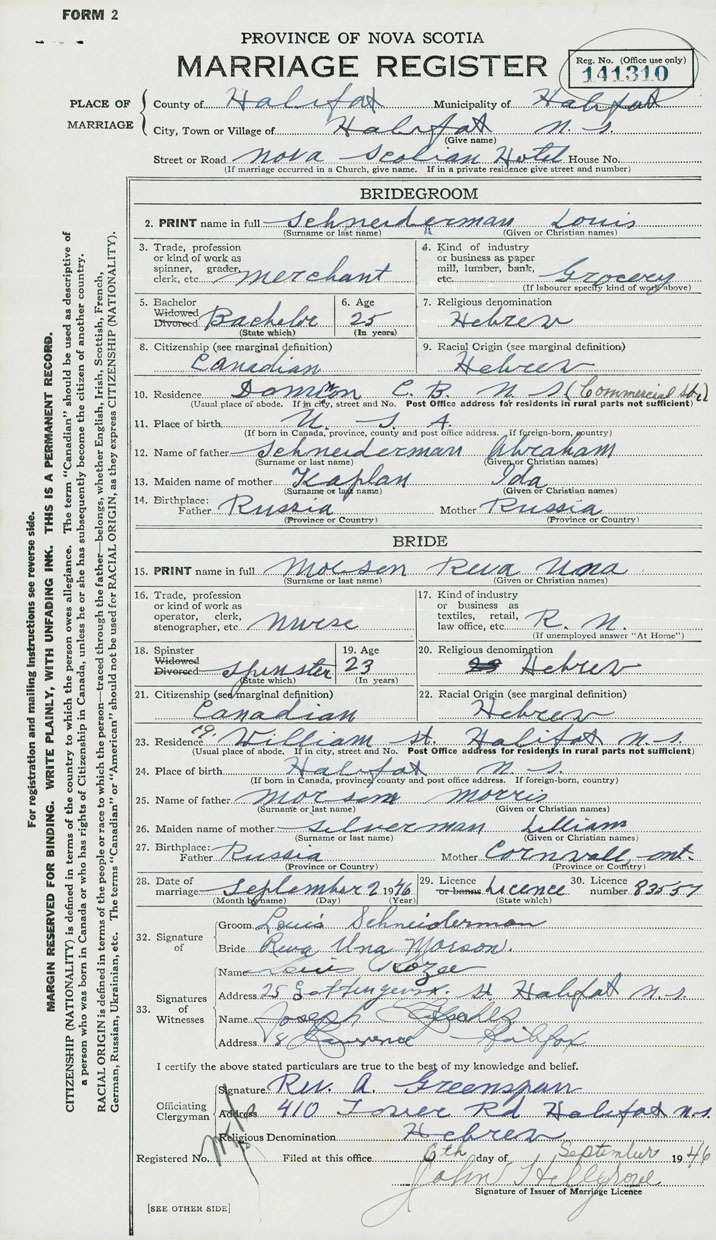 FORM 2
PROVINCE OF NOVA SCOTIA
MARRIAGE REGISTER
Reg. No. (Office use only)
141310
PLACE OF MARRIAGE
County of Halifax Municipality of Halifax
City, Town or Village of Halifax N. S.
(Give name)
Street or Road Nova Scotian Hotel House No.
(If marriage occurred in a Church, give name. If in a private residence give street and number)
BRIDEGROOM
2. PRINT name in full Schneiderman Louis
(Surname or last name) (Given or Christian names)
3. Trade, profession or kind of work as spinner, grader, clerk, etc. Merchant
4. Kind of industry or business as paper mill, lumber, bank, etc. Grocery
(If labourer specify kind of work above)
5. Bachelor Widowed Divorced Bachelor
(State which)
6. Age 25
(In years)
7. Religious denomination
Hebrew
8. Citizenship (see marginal definition)
Canadian
9. Racial Origin (see marginal definition)
Hebrew
10. Residence Domion C. B. N S (Commercial St.)
(Usual place of abode. If in city, street and No. Post Office address for residents in rural parts not sufficient)
11. Place of birth U. S. A.
(If born in Canada, province, county and post office address. If foreign-born, country)
12. Name of father Schneiderman Abraham
(Surname or last name) (Given or Christian names)
13. Maiden name of mother Kaplan Ida
(Surname or last name) (Given or Christian names)
14. Birthplace:
Father Russia Mother Russia
(Province or Country) (Province or Country)
BRIDE
15. PRINT name in full Morson Reva Una
(Surname or last name) (Given or Christian names)
16. Trade, profession or kind of work as operator, clerk, stenographer, etc Nurse
17. Kind of industry or business as textiles, retail, law office, etc. R. N.
(If unemployed answer "At Home")
18. Spinster Widowed Divorced Spinster
(State which)
19. Age 23
(In years)
20. Religious denomination
Hebrew
21. Citizenship (see marginal definition)
Canadian
22. Racial Origin (see marginal definition)
Hebrew
23. Residence 19. William St. Halifax N.S.
(Usual place of abode. If in city, street and No. Post Office address for residents in rural parts not sufficient)
24. Place of birth Halifax N. S.
(If born in Canada, province, county and post office address. If foreign-born, country)
25. Name of father Morson Morris
(Surname or last name) (Given or Christian names)
26. Maiden name of mother Silverman Lilliam
(Surname or last name) (Given or Christian names)
27. Birthplace:
Father Russia Mother Cornwall, Ont.
(Province or Country) (Province or Country)
28. Date of marriage September 2 1946
(Month by name) (Day) (Year)
29. Licence or banns Licence
(State which)
30. Licence number 83557
32. Signature of
Groom Louis Schneiderman
Bride Reva Una Morson.
33. Signatures of Witnesses
Name Louis Rozee
Address 25 Gottingen St Halifax N.S.
Name Joseph
Address Halifax
I certify the above stated particulars are true to the best of my knowledge and belief.
Officiating Clergyman
Signature Rev. A. Greenspan
Address 410 Tower Rd Halifax N.S.
Religious Denomination Hebrew
Registered No. Filed at this office 6th day of September 1946
Signature of Issuer of Marriage Licence
John
[SEE OTHER SIDE]
For registration and mailing instructions see reverse side.
MARGIN RESERVED FOR BINDING. WRITE PLAINLY, WITH UNFADING INK. THIS IS A PERMANENT RECORD.
CITIZENSHIP (NATIONALITY) is defined in terms of the country to which the person owes allegiance. The term "Canadian" should be used as descriptive of
a person who was born in Canada or who has rights of Citizenship in Canada, unless he or she has subsequently become the citizen of another country.
RACIAL ORIGIN is defined in terms of the people or race to which the person—traced through the father—belongs, whether English, Irish, Scottish, French,
German, Russian, Ukrainian, etc. The terms "Canadian" or "American" should not be used for RACIAL ORIGIN, as they express CITIZENSHIP (NATIONALITY).